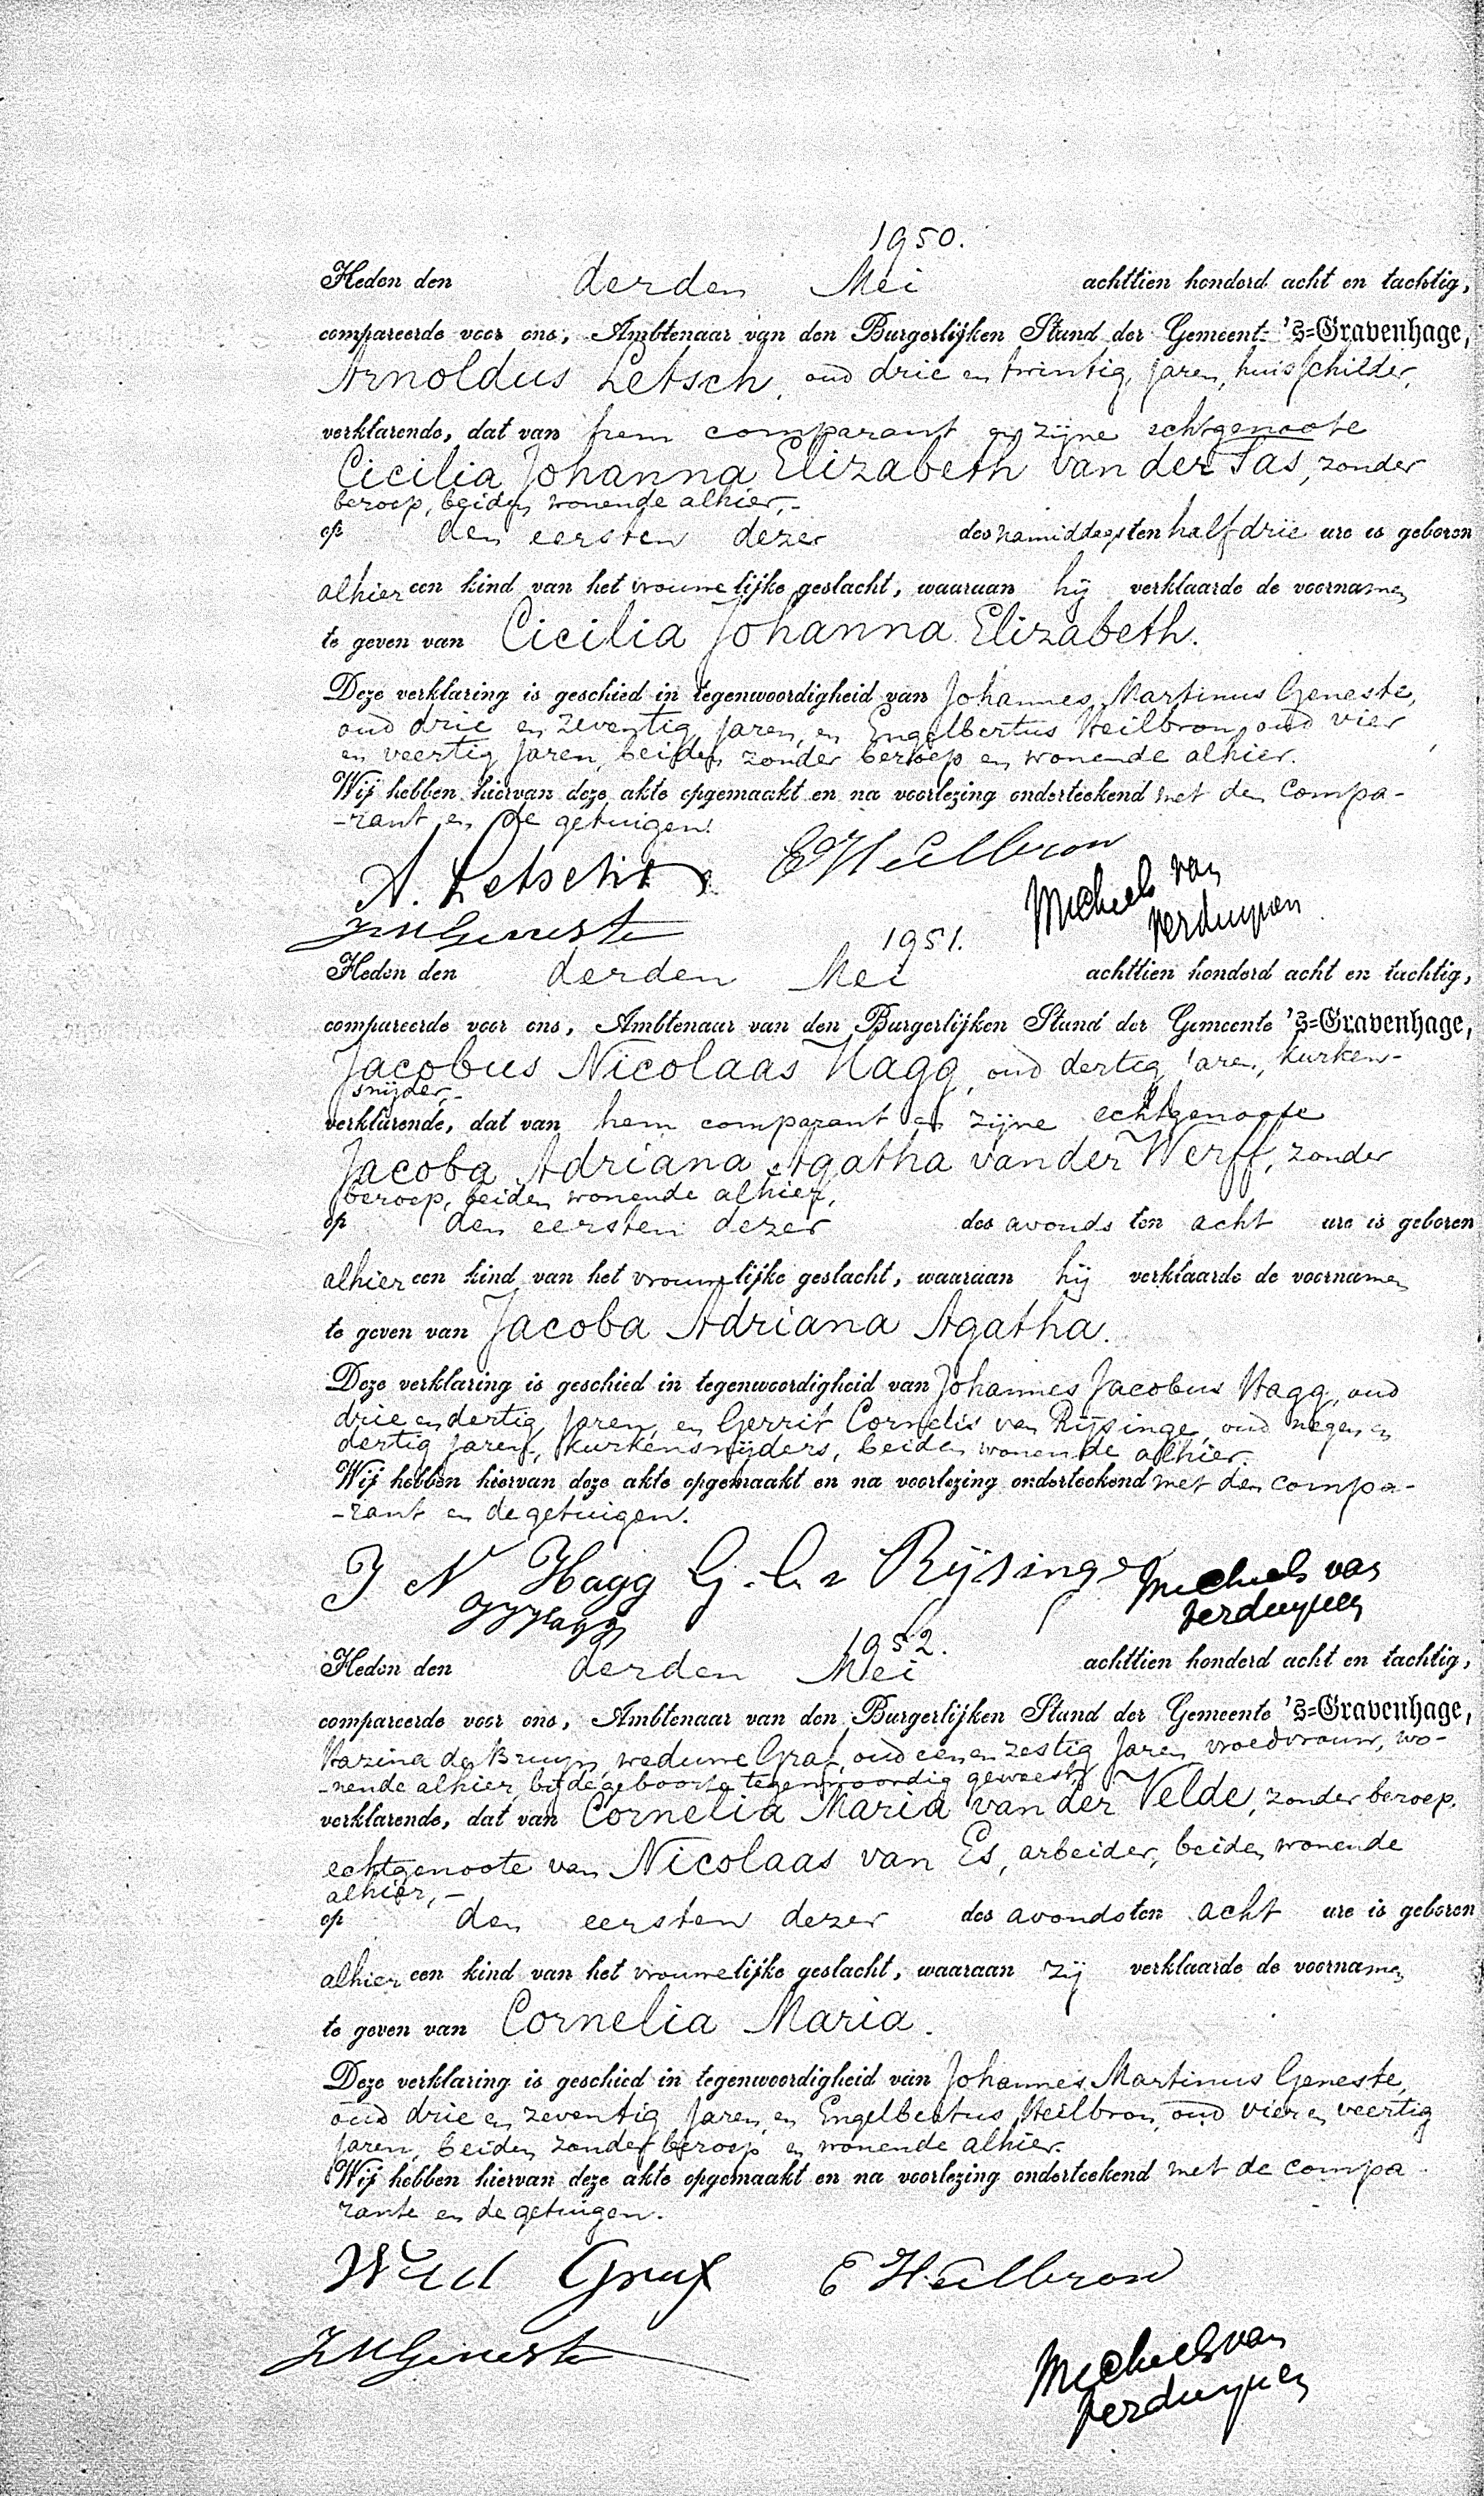 1950.
Heden den derden Mei achttien honderd acht en tachtig,
compareerde voor ons, Ambtenaar van den Burgerlijken Stand der Gemeente 's=Gravenhage,
Arnoldus Letsch, oud drie en twintig jaren, huisschilder,
verklarende, dat van hem comparant en zijne echtgenoote
Cicilia Johanna Elizabeth van der Sas, zonder
beroep, beiden wonende alhier,-
op den eersten dezer des namiddags ten half drie ure is geboren
alhier een kind van het vrouwelijke geslacht, waaraan hij verklaarde de voornamen
te geven van Cicilia Johanna Elizabeth.
Deze verklaring is geschied in tegenwoordigheid van Johannes Martinus Geneste,
oud drie en zeventig jaren, en Engelbertus Heilbron, oud vier
en veertig jaren, beiden zonder beroep en wonende alhier.
Wij hebben hiervan deze akte opgemaakt en na voorlezing onderteekend met den compa-
-rant en de getuigen.
A. Letsch E Heilbron
Michiels van
Verduynen
JMGeneste
1951.
Heden den derden Mei achttien honderd acht en tachtig,
compareerde voor ons, Ambtenaar van den Burgerlijken Stand der Gemeente 's=Gravenhage,
Jacobus Nicolaas Hagg, oud dertig jaren, kurken-
snijder,-
verklarende, dat van hem comparant en zijne echtgenoote
Jacoba Adriana Agatha van der Werff, zonder
beroep, beiden wonende alhier,
op den eersten dezer des avonds ten acht ure is geboren
alhier een kind van het vrouwelijke geslacht, waaraan hij verklaarde de voornamen
te geven van Jacoba Adriana Agatha.
Deze verklaring is geschied in tegenwoordigheid van Johannes Jacobus Hagg, oud
drie en dertig jaren, en Gerrit Cornelis van Rijsinge, oud negen en
dertig jaren, kurkensnijders, beiden wonende alhier.
Wij hebben hiervan deze akte opgemaakt en na voorlezing onderteekend met den compa-
-rant en de getuigen.
J N Hagg G. C. v Rijsinge Michiels van
Verduynen
JJHagg
1952.
Heden den derden Mei achttien honderd acht en tachtig,
compareerde voor ons, Ambtenaar van den Burgerlijken Stand der Gemeente 's=Gravenhage,
de Bruyn, weduwe Graf, oud een en zestig jaren, vroedvrouw, wo-
-nende alhier, bij de geboorte tegenwoordig geweest,
verklarende, dat van Cornelia Maria van der Velde, zonder beroep,
echtgenoote van Nicolaas van Es, arbeider, beiden wonende
alhier,-
op den eersten dezer des avonds ten acht ure is geboren
alhier een kind van het vrouwelijke geslacht, waaraan zij verklaarde de voornamen
te geven van Cornelia Maria.
Deze verklaring is geschied in tegenwoordigheid van Johannes Martinus Geneste,
oud drie en zeventig jaren, en Engelbertus Heilbron, oud vier en veertig
jaren, beiden zonder beroep en wonende alhier.
Wij hebben hiervan deze akte opgemaakt en na voorlezing onderteekend met de compa-
rante en de getuigen.
Wed Graf E Heilbron
JMGeneste
Michiels van
Verduynen